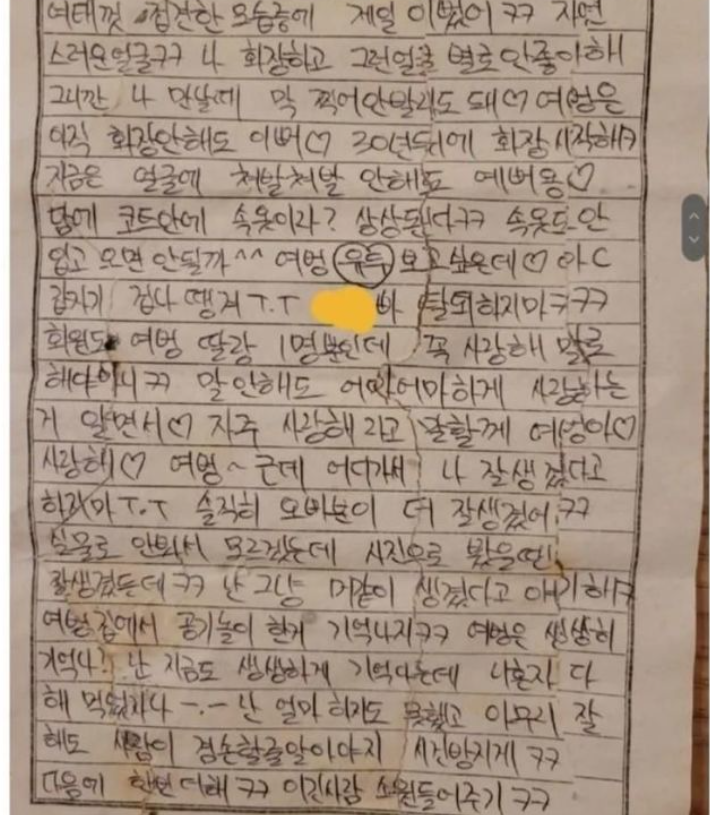 여태껏 접견한 모습중에 제일 이뻤어 ㅋㅋ 자연
스러운얼굴ㅋㅋ 나 화장하고 그런얼굴 별로 안좋아해
그니깐 나 만날때 막 찍어안발라도 돼♡ 여벙은
아직 화장안해도 이뻐♡ 30년뒤에 화장시작해ㅋ
지금은 얼굴에 쳐발쳐발 안해도 예뻐용♡
담에 코트안에 속옷이라? 상상된다ㅋㅋ 속옷도 안
입고 오면 안될까^^ 여벙 우투 보고싶은데♡ 아C
갑자기 겁나 땡겨 T.T 빠 탈퇴하지마ㅋㅋㅋ
회원도 여벙 딸랑 1명뿐인데 꼭 사랑해 말로
해야아니 ㅋㅋ 말안해도 어마어마하게 사랑하는
거 알면서♡ 자주 사랑해 라고 말할께 여벙아♡
사랑해♡ 여벙~ 근데 어디가서 나 잘생겼다고
하지마 T.T 솔직히 오빠분이 더 잘생겼어 ㅋㅋ
실물로 안봐서 모르겠는데 사진으로 봤을땐
잘생겼든데 ㅋㅋ 난 그냥 머같이 생겼다고 얘기해ㅋ
여벙집에서 공기놀이 한거 기억나지ㅋㅋ 여벙은 생생히
기억나? 난 지금도 생생하게 기억나는데 나혼자 다
해 먹었자나 -.- 난 얼마 하지도 못했고 아무리 잘
해도 사람이 겸손할줄알아야지 시건방지게 ㅋㅋ
다음에 한번 더해 ㅋㅋ 이긴사람 소원들어주기 ㅋㅋ